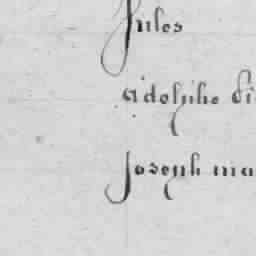 Jules
adolphe
Joseph ma